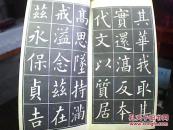 其華我取其
實還淳反本
代文以質居
高思墜持滿
戒溢念茲在
茲永保貞吉